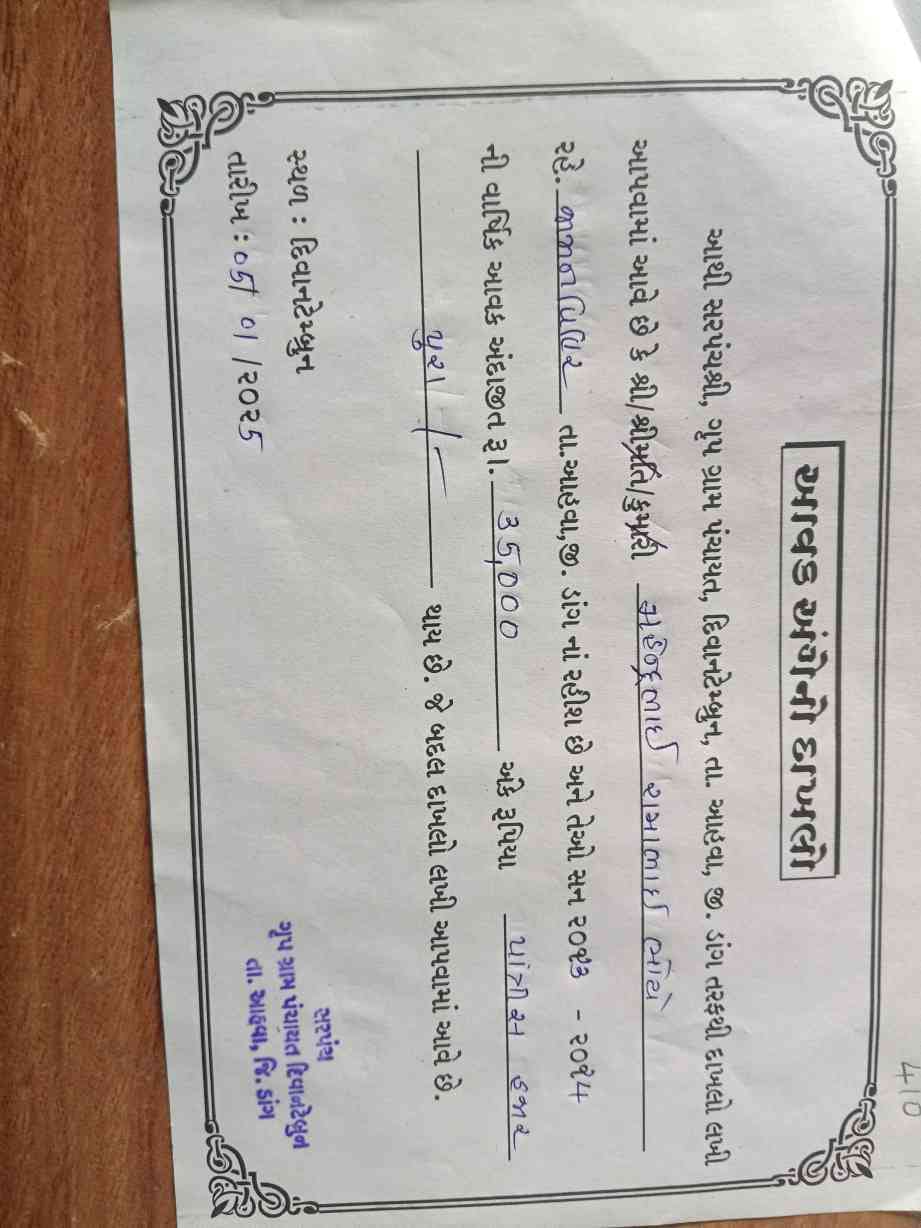 410
આવક અંગેનો દાખલો
આથી સરપંચશ્રી, ગ્રુપ ગ્રામ પંચાયત, દિવાનટેમ્બ્રુન, તા. આહવા, જી. ડાંગ તરફથી દાખલો લખી
આપવામાં આવે છે કે શ્રી/શ્રીમતિ/કુમારી મહેન્દ્રભાઈ રામાભાઈ ભોયે
રહે. તા.આહવા,જી. ડાંગ નાં રહીશ છે અને તેઓ સન ૨૦૨૩ - ૨૦૨૪
ની વાર્ષિક આવક અંદાજીત રૂા. 35,000 અંકે રૂપિયા પાંત્રીસ હજાર
પુરા /- થાય છે. જે બદલ દાખલો લખી આપવામાં આવે છે.
સ્થળ : દિવાનટેમ્બ્રુન
તારીખ : ૦૬/ ૦૧ /૨૦૨૬
સરપંચ
ગ્રુપ ગ્રામ પંચાયત દિવાનટેમ્બ્રુન
તા. આહવા, જિ. ડાંગ